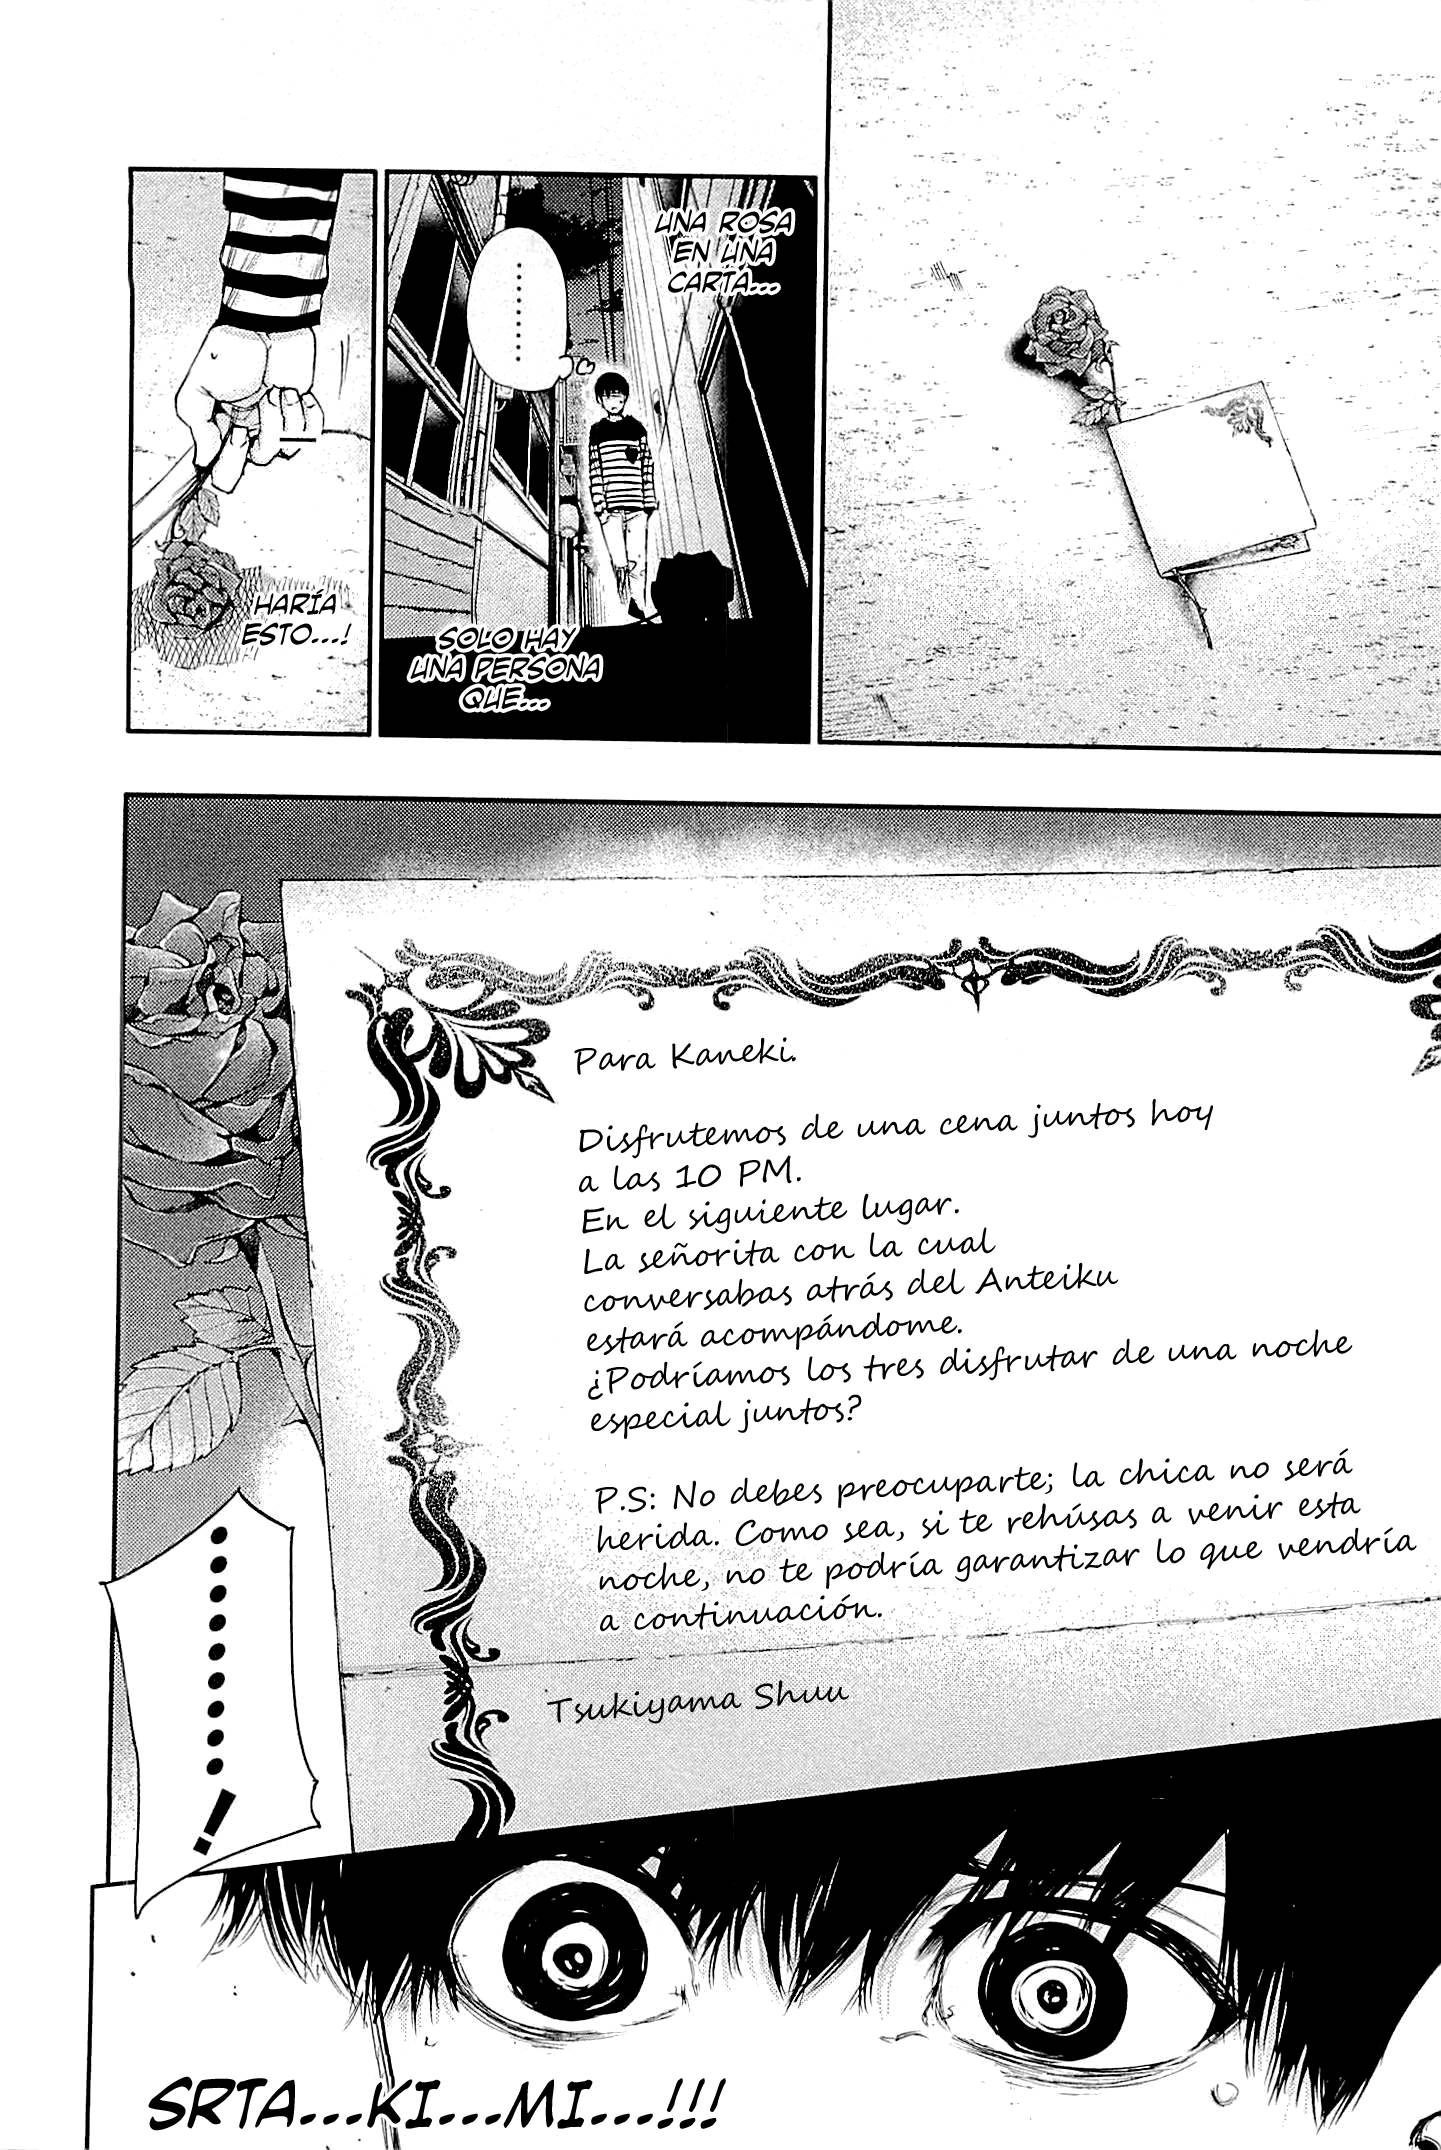 UNA ROSA
EN UNA
CARTA...
.........
SOLO HAY
UNA PERSONA
QUE...
HARÍA
ESTO...!
Para Kaneki.
Disfrutemos de una cena juntos hoy
a las 10 PM.
En el siguiente lugar.
La señorita con la cual
conversabas atrás del Anteiku
estará acompándome.
¿Podríamos los tres disfrutar de una noche
especial juntos?
P.S: No debes preocuparte; la chica no será
herida. Como sea, si te rehúsas a venir esta
noche, no te podría garantizar lo que vendría
a continuación.
Tsukiyama Shuu
.........!
SRTA...KI...MI...!!!